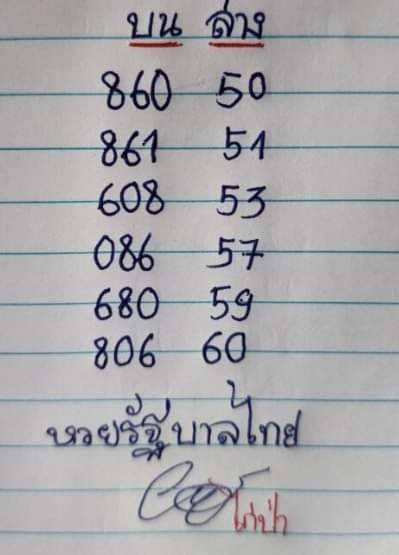 บน ล่าง
860 50
861 51
608 53
086 57
680 59
806 60
หวยรัฐบาลไทย
ไก่ป่า